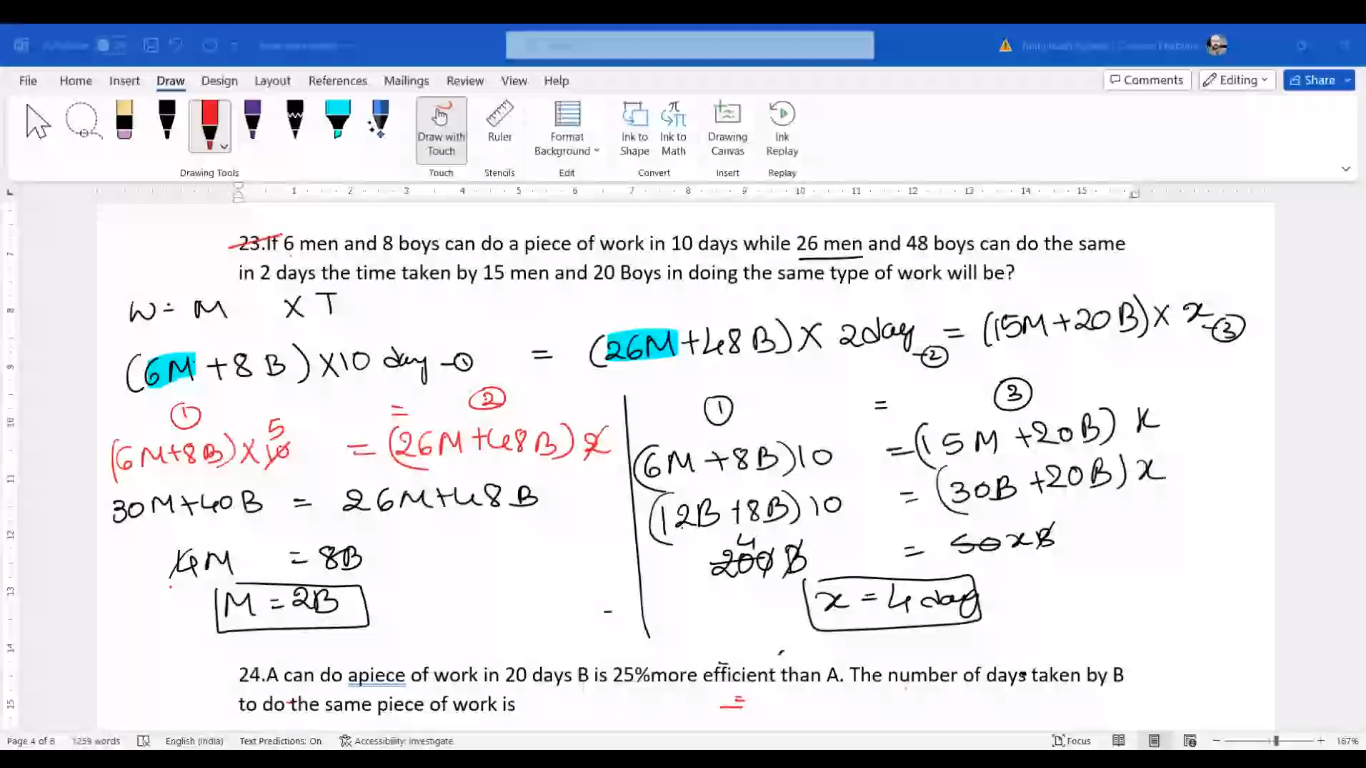 File Home Insert Draw Design Layout References Mailings Review View Help Comments Editing Share
Draw with Touch Ruler Format Background Ink to Shape Ink to Math Drawing Canvas Ink Replay
Drawing Tools Touch Stencils Edit Convert Insert Replay
1 2 3 4 5 6 7 8 9 10 11 12 13 14 15
23.If 6 men and 8 boys can do a piece of work in 10 days while 26 men and 48 boys can do the same
in 2 days the time taken by 15 men and 20 Boys in doing the same type of work will be?
W = M X T
(6M + 8B) × 10 day - ① = (26M + 48B) × 2 day - ② = (15M + 20B) × x - ③
① = ②
(6M+8B) × 10 5 = (26M+48B) 2
30M+40B = 26M+48B
4M = 8B
M = 2B
① = ③
(6M + 8B) 10 = (15M + 20B) x
(12B + 8B) 10 = (30B + 20B) x
4
200 B = 50 x B
x = 4 day
24.A can do apiece of work in 20 days B is 25%more efficient than A. The number of days taken by B
to do the same piece of work is
Page 4 of 6 1259 words English (India) Text Predictions: On Accessibility: Investigate Focus 167%